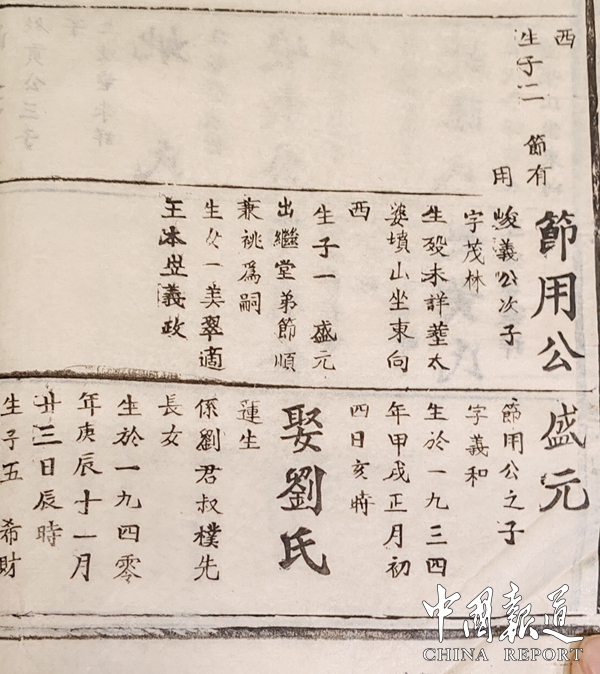 西
生子二 節有
用
節用公
峻義公次子
字茂林
生殁未詳塟太
婆墳山坐東向
西
生子一 盛元
出繼堂弟節順
兼祧爲嗣
生女一美翠適
王本岦義政
盛元
節用公之子
字義和
生於一九三四
年甲戌正月初
四日亥時
娶劉氏
蓮生
係劉君叔樸先
長女
生於一九四零
年庚辰十一月
廿三日辰時
生子五 希財
中國報道
CHINA REPORT